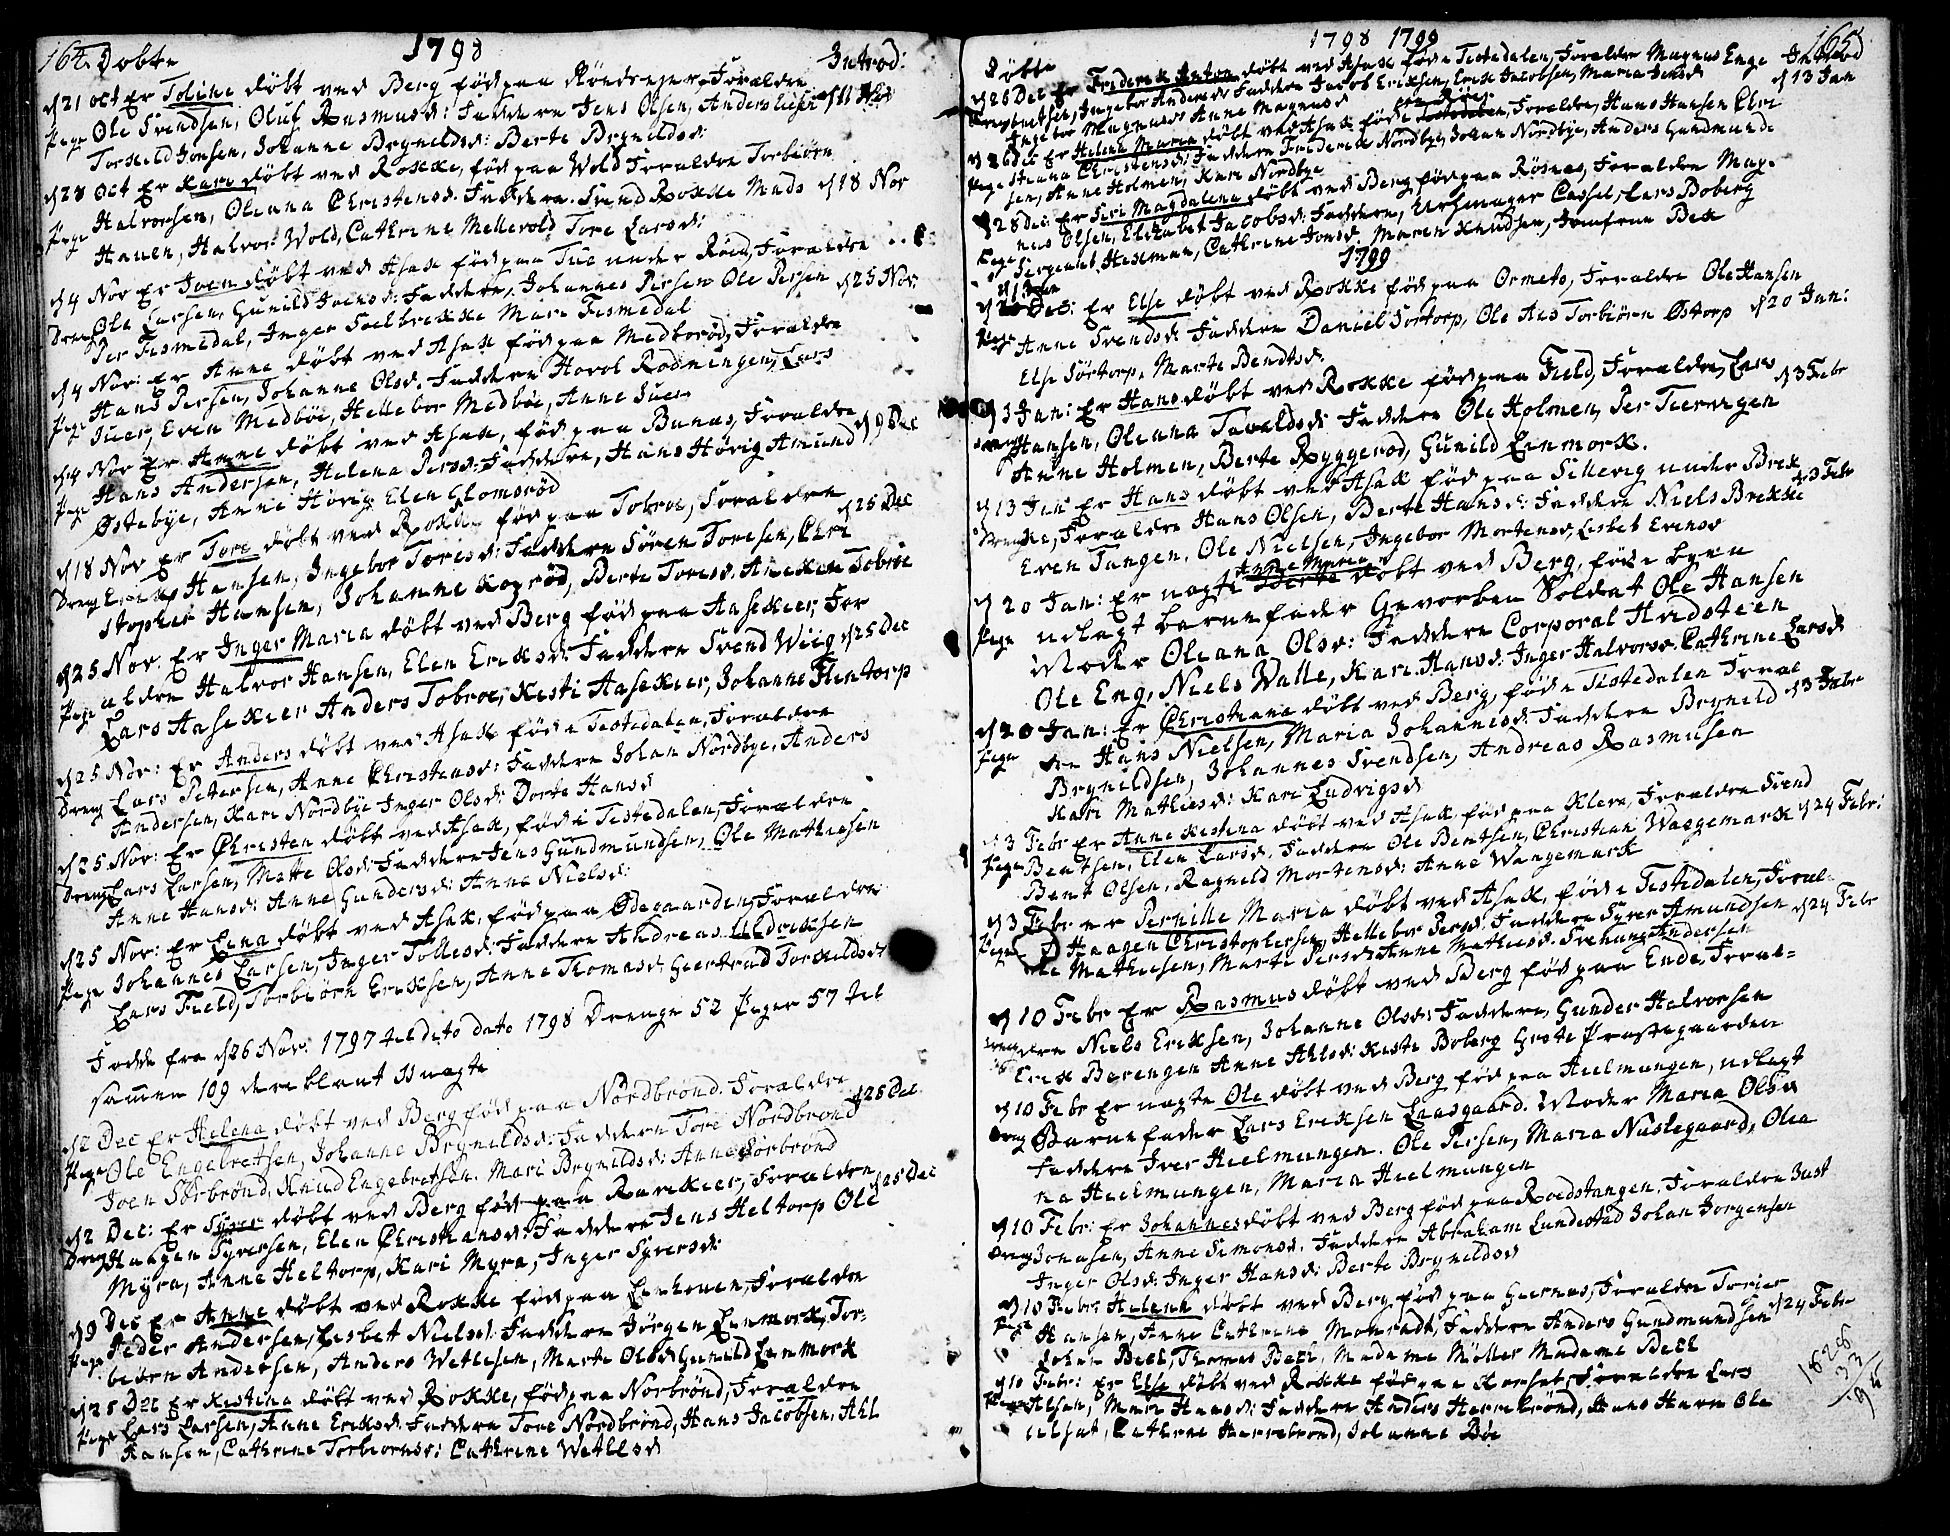 164. Døbte 1798 Introd:
d 21 Oct Er Toline døbt ved Berg fød paa Rønds Forældre
Pige Ole Svendsen, Oluf Rasmusd: Faddere Jens Olsen, Anders
Torkild Jonsen, Johanne Brynildsd: Berte Brynildsd:
d 28 Oct Er Kari døbt ved Rokke, fød paa Wold Forældre Torbiørn
Pige Halvorsen, Oleana Christensd. Faddere. Svend Rokke Mads d 18 Nov
Hauen, Halvor Wold, Cathrine Mellevold Tore Larsd:
d 4 Nov Er Joen døbt ved Asak fød paa Tue under Røed, Forældre
Dreng Ole Larsen, Gunild Joensd: Faddere, Johannes Persen Ole Persen d 25 Nov:
Per Fismedal, Inger Soelbrekke Mari Fismedal
d 4 Nov: Er Anne døbt ved Asak fød paa Medborød, Forældre
Pige Hans Persen, Johanne Olsd. Faddere Horol Rødningen, Lars
Juer, Even Medbøe, Hellebor Medbøe, Anne Juer
d 4 Nov Er Anne døbt ved Asak, fød paa Bunæs, Forældre
Pige Hans Andersen, Helena Persd: Faddere, Hans Høvig Amund d 9 Dec
Østebye, Anni Hørig Elen Glomsrød
d 18 Nov Er Tore døbt ved Rokke fød paa Tobroe, Forældre d 26 Dec
Dreng Erik Hansen, Ingebor Toresd: Faddere Søren Toresen, Chri
stopher Hansen, Johanne Kopsrød, Berte Toresd. Aneken Tobroe
d 25 Nov: Er Inger Maria døbt ved Berg fød paa Aasekier, For
Pige ældre Halvor Hansen, Elen Eriksd: Faddere Svend Wiig d 25 Dec
Lars Aasekier Anders Tobroe, Kisti Aasekier, Johanne Flentorp
d 25 Nov: Er Anders døbt ved Asak fød i Tistedalen, Forældre
Dreng Lars Petersen, Anne Christensd: Faddere Johan Nordbye, Anders
Andersen, Kari Nordbye Inger Olsd: Dorte Hansd
d 25 Nov: Er Christen døbt ved Asak, fød i Tistedalen, Forældre
Dreng Lars Larsen, Mette Olsd: Faddere Jens Gundmundsen, Ole Mathiesen
Anne Hansd: Anne Gundersd: Anne Nielsd:
d 25 Nov: Er Lena døbt ved Asak, fød paa Ødegaarden, Forældre
Pige Johannes Larsen, Inger Tollesd: Faddere Andreas Uldriksen
Lars Field, Torbiørn Eriksen, Anne Thomasd: Geertrud Torkildsd:
Fødde fra d 26 Nov: 1797 til dito dato 1798 Drenge 52 Piger 57 til
samen 109 der iblant 11 uægte
d 2 Dec Er Helena døbt ved Berg fød paa Nordbrønd. Forældre d 26 Dec.
Pige Ole Engebretsen, Johanne Brynildsd: Faddere Tore Nordbrønd
Joen Sørbrønd, Knud Engebretsøn. Mari Brynildsd: Anne Sørbrønd
d 2 Dec: Er Syver døbt ved Berg fød paa Rarekier, Forældre
Dreng Haagen Syversen, Elen Christiansd: Faddere Jens Heltorp Ole d 25 Dec
Myra, Anne Heltorp, Kari Myra, Inger Syversd:
d 9 Dec Er Anne døbt ved Rokke fød paa Lenhouen, Forældre
Pige Peder Andersen, Lisbet Nielsd: Faddere Jørgen Lenmork, Tor-
biørn Andersen, Anders Wetlesen, Marte Olsd Gunild Lenmork
d 26 Dec Er Kistina døbt ved Rokke, fød paa Norbrønd, Forældre
Pige Lars Larsen, Anne Eriksd: Faddere Tore Nordbrønd, Hans Jacobsen, Ahl
Hansen, Cathrine Torbiornsd: Cathrine Wetlesd
1798 1799 165
Døbte Introd
d 26 Dec Er Frederik Anton døbt ved Asak fød i Tistedalen, Forældre Magnus Enge d 13 Jan
Dreng bretsen, Ingebor Andersd: Faddere Jacob Eriksen, Erik Jacobsen, Maria Jensd
Ingebor Magnusd Anne Magnusd
d 26 Dec Er Helena Maria døbt ved Asak fød i Tistedalen, Forældre, Hans Hansen Chri
Pige stiana Christensd: Faddere Friderik Nordbye, Johan Nordbye, Anders Gundmunds
sen, Anne Holmen, Kari Nordbye
d 28 Dec: Er Siri Magdalena døbt ved Berg fød paa Røsnæs, Forældre Mag-
Pige nus Olsen, Elizabet Jacobsd: Faddere, Urhmager Cassel, Lars Boberg
Sergeant Heseman, Cathrine Jonsd: Maren Knudsen, Jomfrue Bek
1799
d 1 Jan: Er Else døbt ved Rokke fød paa Ormets, Forældre Ole Hansen
Pige Anne Svendsd: Faddere Daniel Sørtorp, Ole Aas Torbiørn Østorp d 20 Jan:
Else Sørtorp, Marte Bendtsd:
d 3 Jan: Er Hans døbt ved Rokke fød paa Field, Forældre Lars d 3 Febr
Dreng Hansen, Oleana Tavaldsd: Faddere Ole Holmen, Per Tiervigen
Anne Holmen, Berte Ryggerød, Gunild Lenmork.
d 13 Jan Er Hans døbt ved Asak fød paa Sillevig under Brek
Dreng ke, Forældre Hans Olsen, Berte Hansd: Faddere Niels Brekke d 3 Febr
Even Tangen, Ole Nielsen, Ingebor Mortensd, Lisbet Evensd
Anne Maria
d 20 Jan: Er uægte Berte døbt ved Berg, fød i byen
Pige udlagt barnefader Gevorben Soldat Ole Hansen
Moder Oleana Olsd: Faddere Corporal Hvidsteen
Ole Eng, Niels Walle, Kari Hansd: Inger Halvorsd: Cathrine Larsd
d 20 Jan: Er Christiana døbt ved Berg, fød i Tistedalen Foræl
Pige dre Hans Nielsen, Maria Johannesd: Faddere Brynild d 3 Febr
Brynildsen, Johannes Svendsen, Andreas Rasmusen
Kari Mathiesd: Kari Ludvigsd
d 3 Febr Er Anne Kistina døbt ved Asak fød paa Kleve, Forældre Svend
Pige Bentsen, Elen Larsd. Faddere Ole Bentsen, Christian Wangemark d 24 Febr:
Bent Olsen, Ragnild Mortensd: Anne Wangemark
d 3 Febr er Pernille Maria døbt ved Asak, fød i Tistedalen, Foræl-
Pige Haagen Christophersen, Hellebor Persd: Faddere Syver Amundsen d 24 Febr
Ole Mathiesen, Marte Persd: Anne Mathiesd: Andersen
d 10 Febr Er Rasmus døbt ved Berg fød paa Ende, Foræl-
Dreng dre Niels Eriksen, Johanne Olsd: Faddere, Gunder Halvorsen
Erik Berengen Anne Ahlsd: Kiste Boberg Grete Præstegaarden
d 10 Febr Er uægte Ole døbt ved Berg fød paa Hielmungen, udlagt
Dreng Barnefader Lars Eriksen Laasgaard. Moder Maria Olsd
Faddere Iver Hielmungen. Ole Persen, Maria Nustegaard, Olea
na Hielmungen, Maria Hielmungen
d 10 Febr: Er Johannes døbt ved Berg fød paa Roedstangen. Forældre Just
Dreng Jonasen, Anne Simonsd. Faddere Abraham Lundestad Johan Jørgensen
Inger Olsd: Inger Hansd: Berte Brynildsd
d 10 Febr: Helene døbt ved Berg fød paa Giernæs, Forældre Torier
Pige Hansen, Anne Cathrine Monradt, Faddere Anders Gundmundsen d 24 Febr
Johan Bech, Thomas Bech, Madame Møller Madame Bech
d 10 Febr: Er Else døbt ved Rokke fød paa Korset, Forældre Lars
Pige Olsen, Mari Hansd: Faddere Anders Harrebrønd, Hans Ole
Cathrine Harrebrønd, Johanne Bøe
1828
33
95